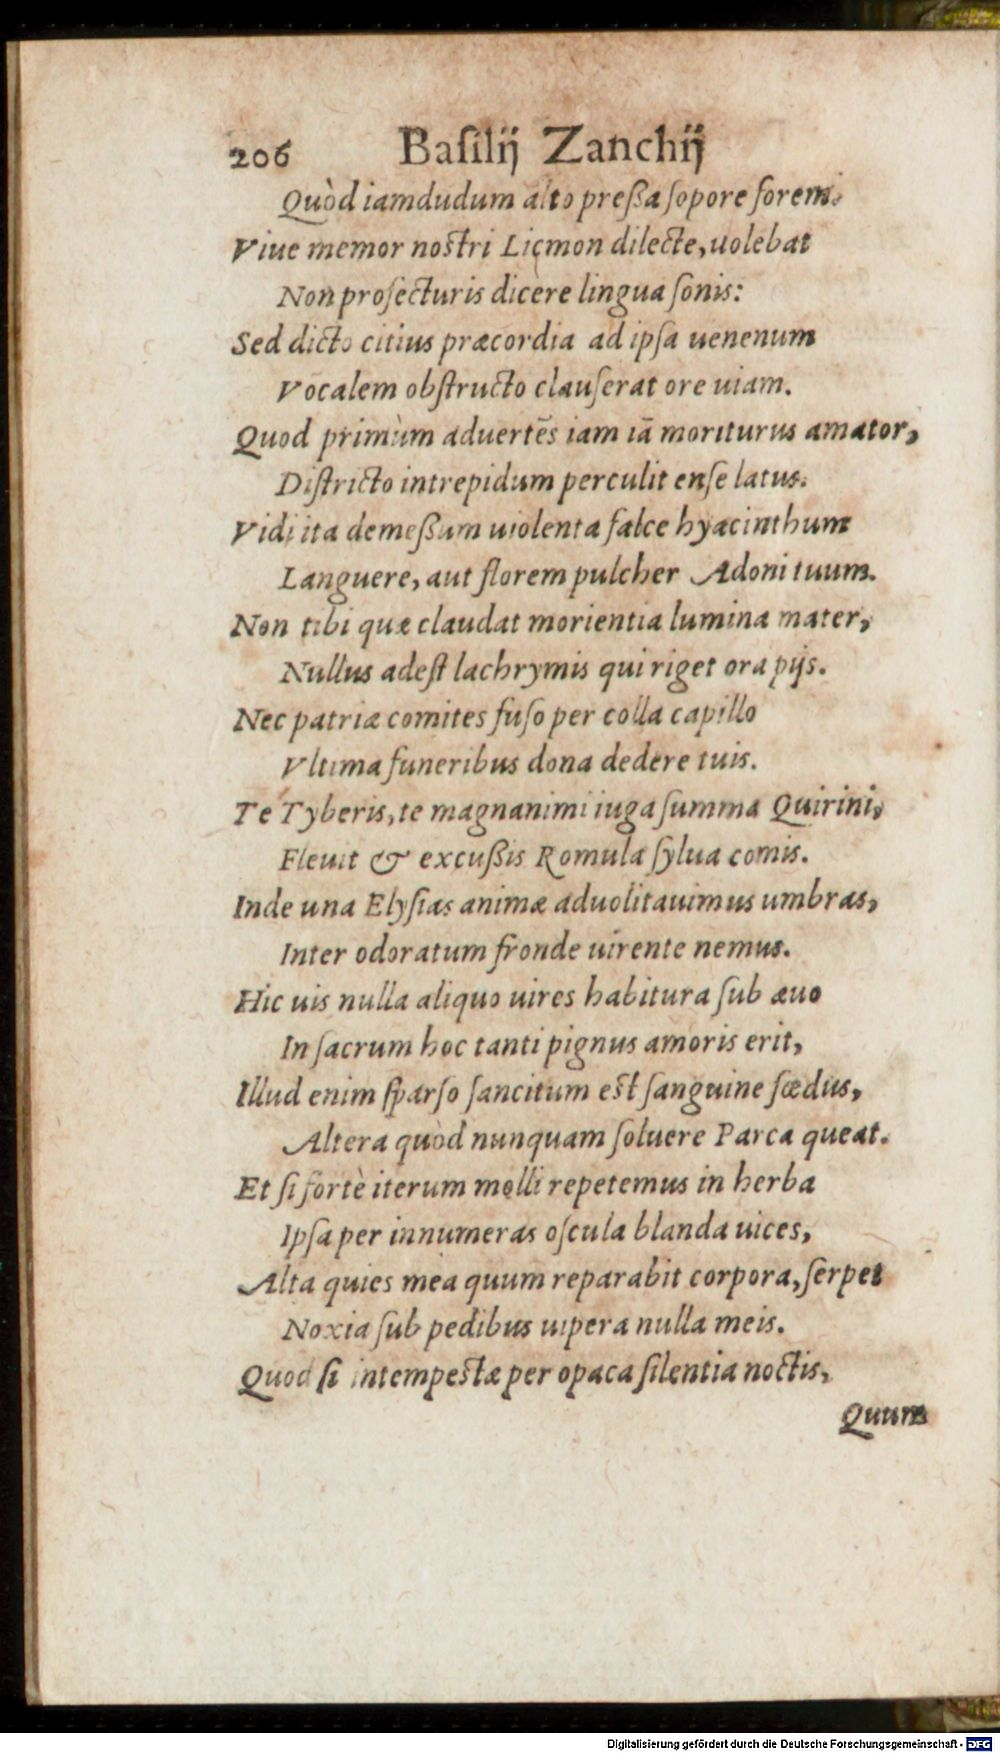 206 Baſilij Zanchij
Quòd iamdudum alto preßa ſopore forem.
Viue memor noſtri Licmon dilecte, uolebat
Non profecturis dicere lingua ſonis:
Sed dicto citius præcordia ad ipſa uenenum
Vocalem obſtructo clauſerat ore uiam.
Quod primùm aduertēs iam iā moriturus amator,
Diſtricto intrepidum perculit enſe latus.
Vidi ita demeßum uiolenta falce hyacinthum
Languere, aut florem pulcher Adoni tuum.
Non tibi quæ claudat morientia lumina mater,
Nullus adeſt lachrymis qui riget ora pijs.
Nec patriæ comites fuſo per colla capillo
Vltima funeribus dona dedere tuis.
Te Tyberis, te magnanimi iuga ſumma Quirini,
Fleuit & excußis Romula ſylua comis.
Inde una Elyſias animæ aduolitauimus umbras,
Inter odoratum fronde uirente nemus.
Hic uis nulla aliquo uires habitura ſub æuo
In ſacrum hoc tanti pignus amoris erit,
Illud enim ſparſo ſancitum eſt ſanguine fœdus,
Altera quòd nunquam ſoluere Parca queat.
Et ſi fortè iterum molli repetemus in herba
Ipſa per innumeras oſcula blanda uices,
Alta quies mea quum reparabit corpora, ſerpet
Noxia ſub pedibus uipera nulla meis.
Quod ſi intempeſtæ per opaca ſilentia noctis,
Quum
Digitalisierung gefördert durch die Deutsche Forschungsgemeinschaft - DFG